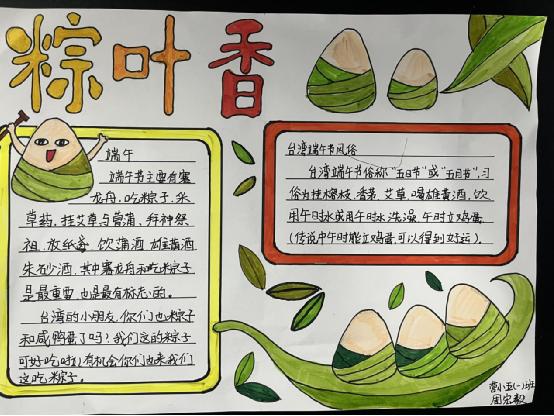 粽叶香
端午
端午节主要有赛
龙舟、吃粽子、采
草药、挂艾草与菖蒲、拜神祭
祖、放纸鸢、饮蒲酒、雄黄酒
朱砂酒，其中赛龙舟和吃粽子
是最重要，也是最有标志的。
台湾的小朋友，你们也吃粽子
和咸鸭蛋了吗？我们这的粽子
可好吃啦！有机会你们也来我们
这吃粽子。
台湾端午节风俗
台湾端午节俗称“五日节”或“五月节”，习
俗为挂榕枝、香茅、艾草、喝雄黄酒、饮
用午时水或用午时水洗澡、午时立鸡蛋
(传说中午时能立鸡蛋，可以得到好运)。
小五(一)班
周宏毅